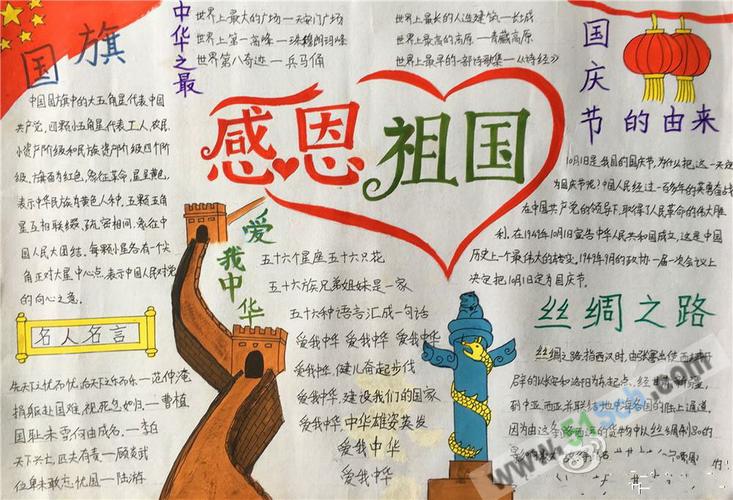 国旗
中国国旗中的大五角星代表中国
共产党,四颗小五角星代表工人,农民,
小资产阶级和民族资产阶级四个阶
级,旗面为红色,象征革命,星呈黄色,
表示中华民族为黄色人种,五颗五角
星互相联缀,疏密相间,象征中
国人民大团结,每颗小星各有一个尖
角正对大星中心点,表示中国人民对党
的向心之意。
名人名言
先天下之忧而忧,后天下之乐而乐。—范仲淹
捐躯赴国难,视死忽如归。—曹植
国耻未雪何由成名。—李白
天下兴亡,匹夫有责—顾炎武
位卑未敢忘忧国—陆游
中华之最
世界上最大的广场—天安门广场
世界上第一高峰—珠穆朗玛峰
世界第八奇迹—兵马俑
世界上最长的人造建筑—长城
世界上最高的高原—青藏高原
世界上最早的一部诗歌集—《诗经》
感恩祖国
爱我中华
五十六个星座五十六只花
五十六族兄弟姐妹是一家
五十六种语言汇成一句话
爱我中华 爱我中华 爱我中华
爱我中华,健儿奋起步伐
爱我中华,建设我们的国家
爱我中华中华雄姿英发
爱我中华
爱我中华
国庆节的由来
10月1日是我国的国庆节,为什么把这一天定
为国庆节呢?中国人民经过一百多年的英勇奋战
在中国共产党的领导下,取得了人民革命的伟大胜
利,在1949年10月1日宣告中华人民共和国成立,这是中国
历史上一个最伟大的转变,1949年9月的政协一届一次会议上
决定把10月1日定为国庆节。
丝绸之路
丝绸之路,指西汉时,由张骞出使西域开